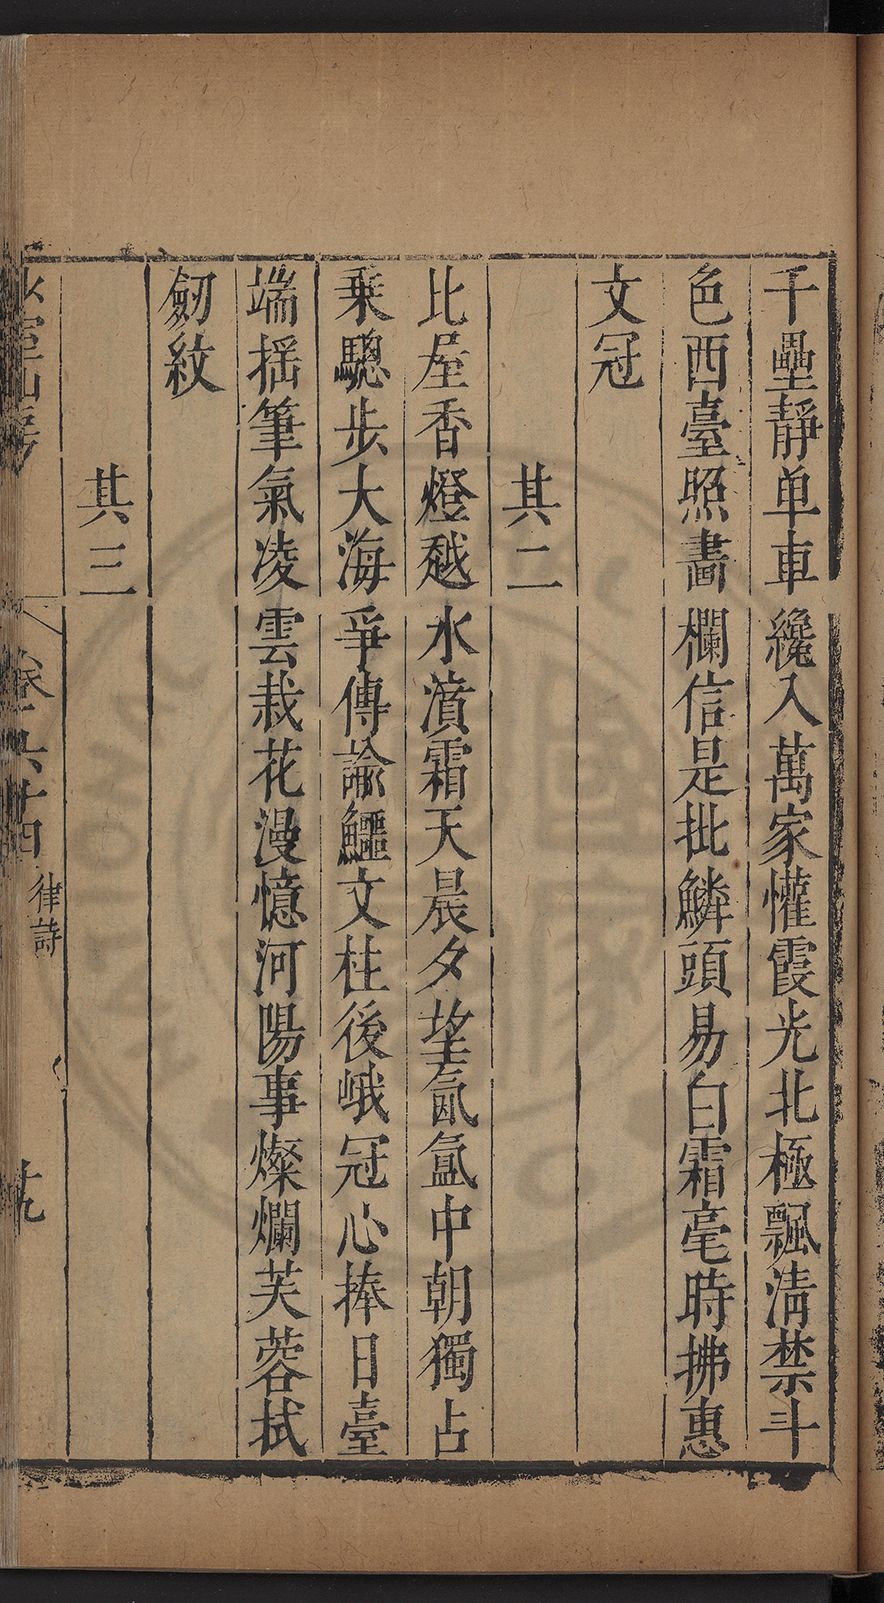 千壘靜单車纔入萬家懽霞光北極飄淸禁斗
色西臺照畵欄信是批鱗頭易白霜毫時拂惠
文冠
其二
比屋香燈越水濆霜天晨夕望氤氳中朝獨占
乗驄步大海爭傳諭鱷文柱後峨冠心捧日臺
端揺筆氣凌雲栽花漫憶河陽事燦爛芙蓉拭
劒紋
其三
卷之六十四
律詩